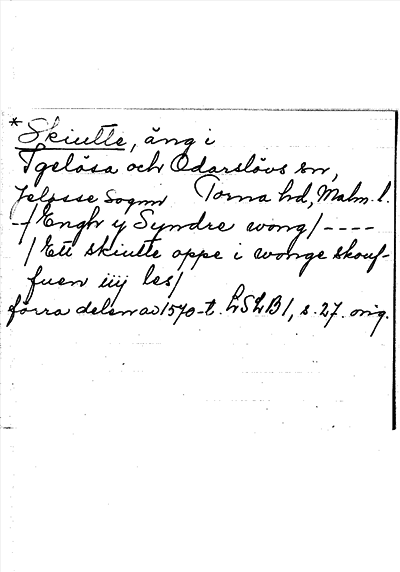 *Skiutte, äng i
Igelösa och Odarslövs sn,
Jelösse Sognn Torna hd, Malm. l.
-/Engh y Syndre wong/----
/Ett skiutte oppe i wonge skouf-
fuen iiij les/
förra delen av 1570-t. LSLB 1, s. 27. orig.